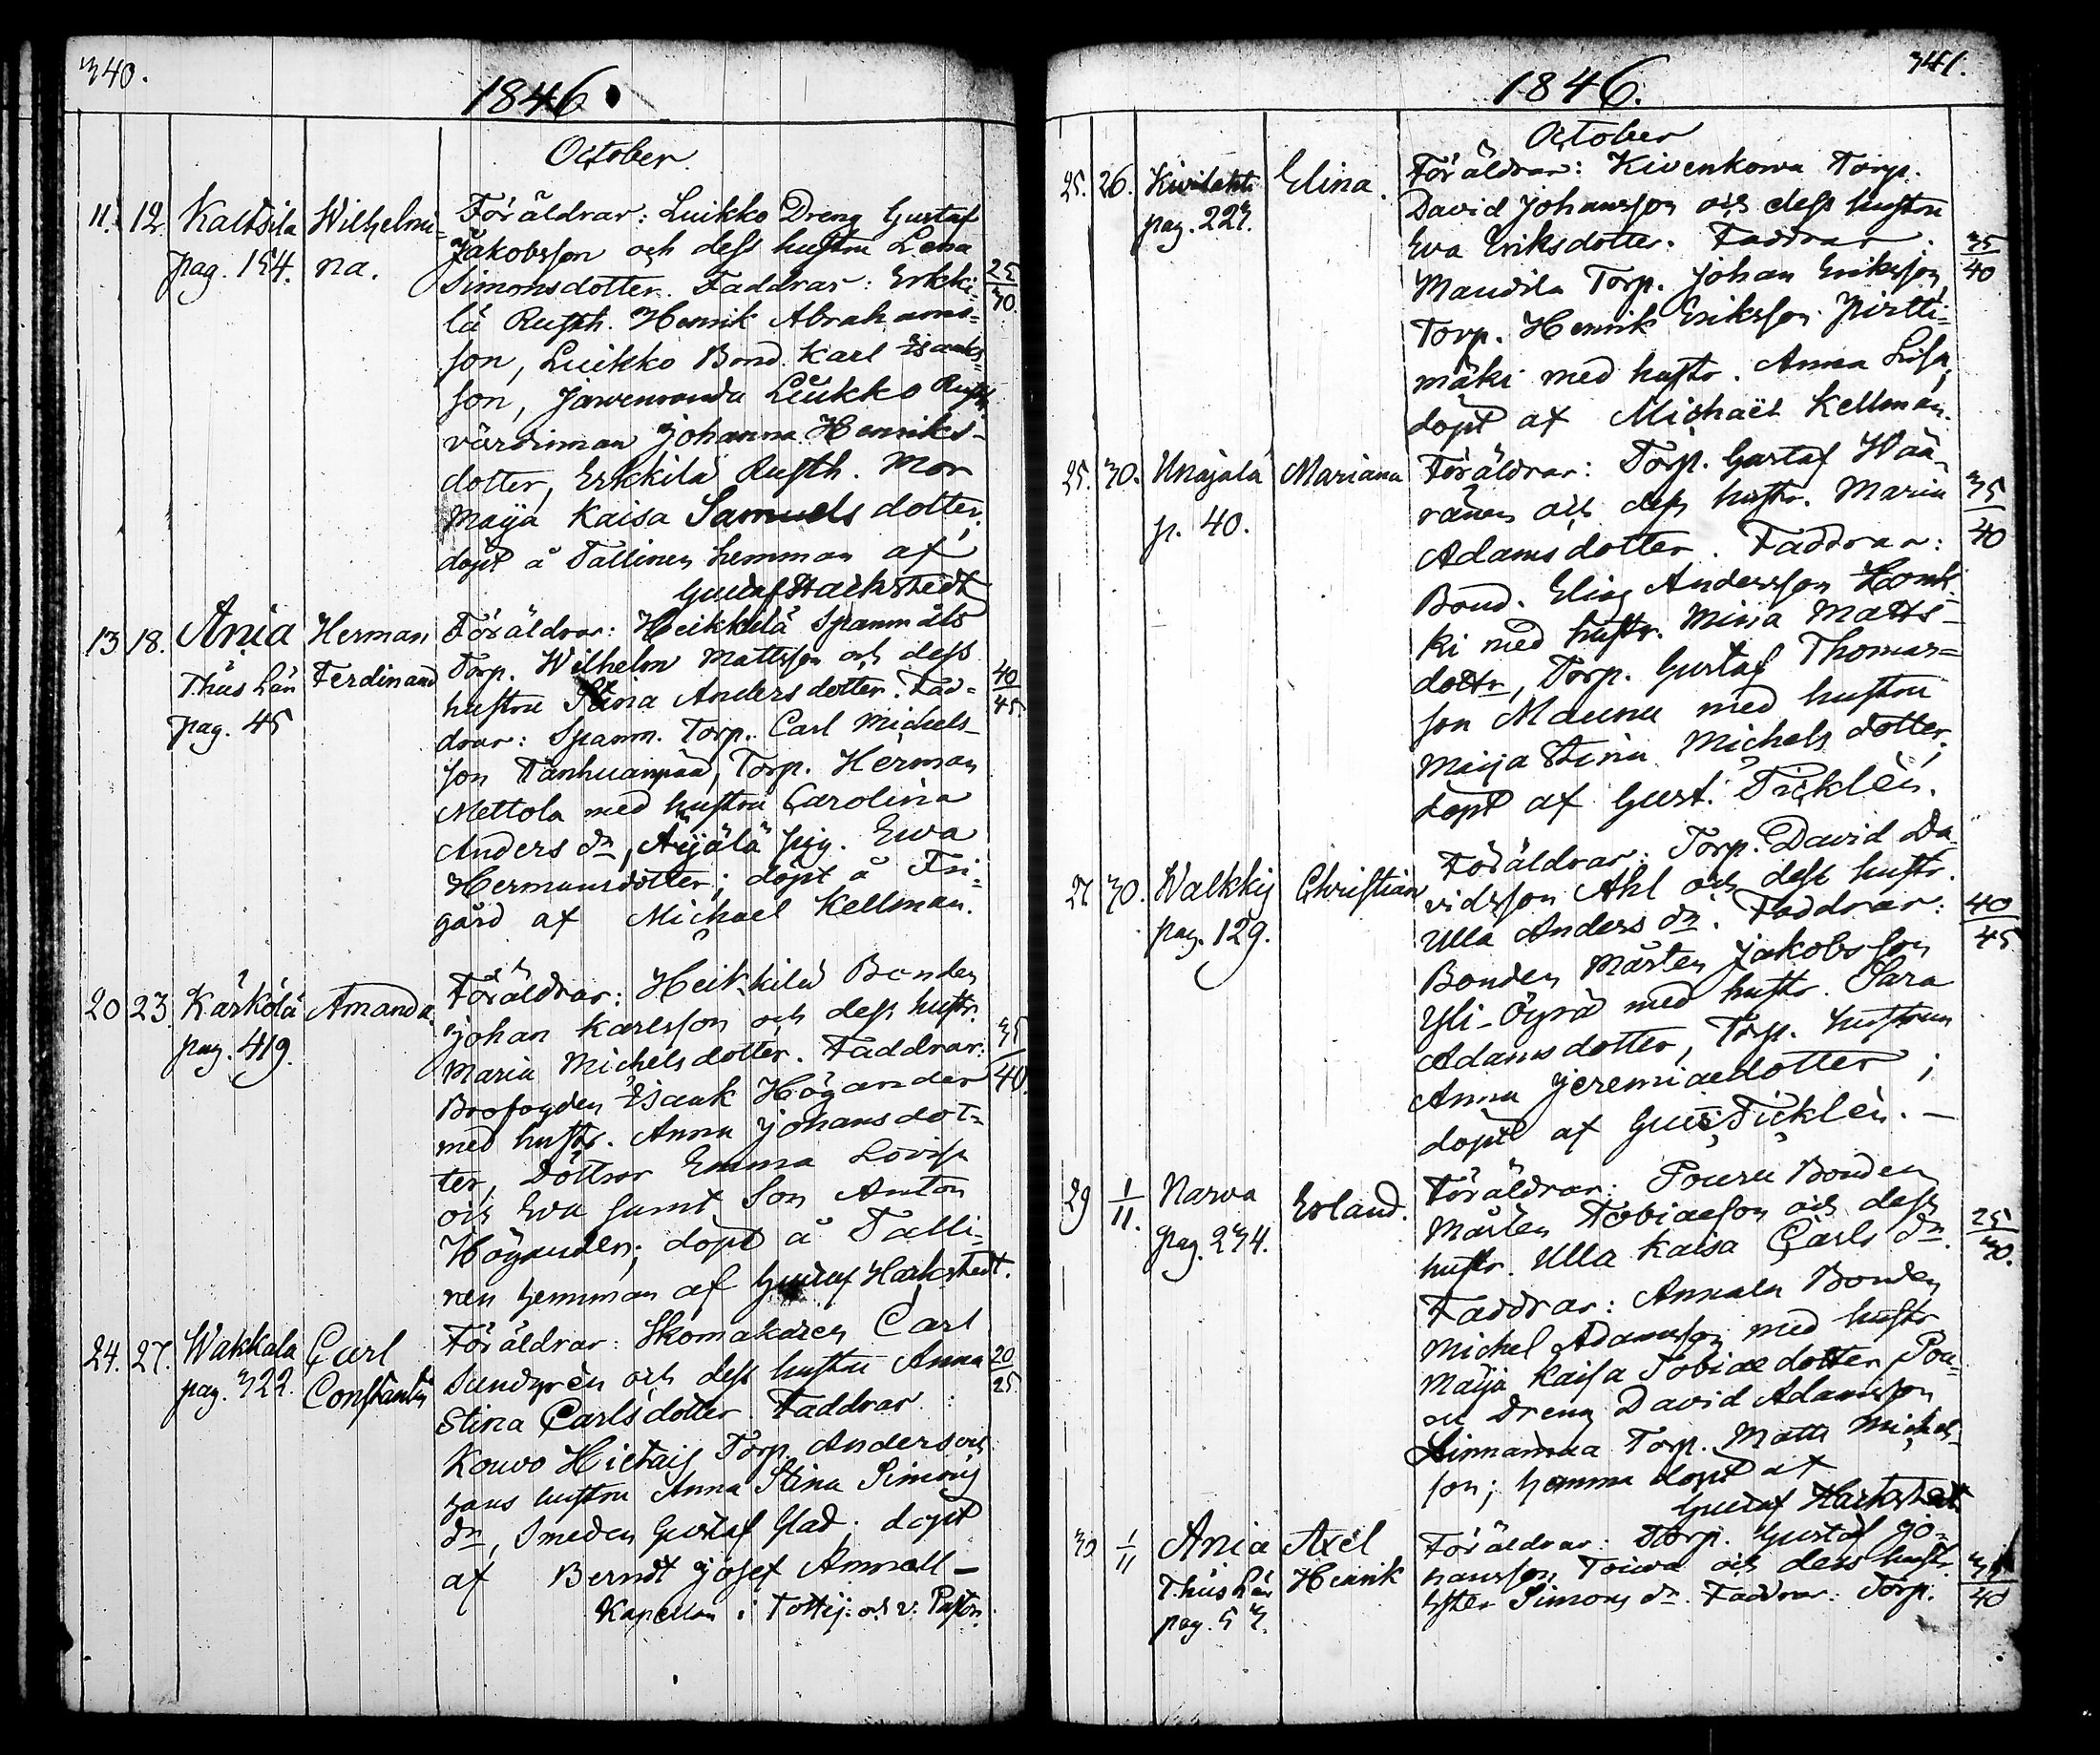 340.
1846.
October
11. 12. Kaltsila Wilhelmi- Föräldrar: Luikko Dreng Gustaf
pag. 154. na. Jakobsson och dess hustru Lena
Simonsdotter. Faddrar: Erkki- 25/30.
lä Rusth. Henrik Abrahams-
son, Luikko Bond. Karl Isaaks-
son, Luikko Rusth.
värdinnan Johanna Henriks-
dotter, Erkkilä Rusth. Mor
Maija Kaisa Samuels dotter;
döpt å Tallinen hemman af
Gustaf Harkstedt
13 18. Ania Herman Föräldrar: Heikkilä Spannmåls
Thus Län Ferdinand Torp. Wilhelm Mattsson och dess 40/45
pag. 45 hustru Stina Andersdotter. Fad-
drar: Spanm. Torp. Carl Michels-
son Tanhuanpää, Torp. Herman
Mettola med hustru Carolina
Anders dr, Äijälä pig. Ewa
Hermansdotter; döpt å Fri-
gård af Michael Kellman.
20 23. Kärkölä Amanda. Föräldrar: Heikkilä Bonden
pag. 419. Johan Karlsson och dess hustr.
Maria Michelsdotter. Faddrar: 35/40.
Brofogden Isaak Högander
med hustr. Anna Johansdot-
ter, Döttrar Emma Lovisa
och Eva samt Son Anton
Högander; döpt å Talli-
nen hemman af Gustaf Harkstedt.
24. 27. Wakkala Carl Föräldrar: Skomakaren Carl
pag. 322. Constantin Sundgrén och dess hustru Anna 20/25
Stina Carlsdotter. Faddrar:
Kouvo Hietais Torp. Anders och
hans hustru Anna Stina Simons
dr, Smeden Gustaf Glad; döpt
af Berndt Josef Amnell –
Kapellan i Tottij. och v. Pastor.
341.
1846.
October
25. 26. Kivilahti Elina. Föräldrar: Kivenkorva Torp.
pag. 227. David Johansson och dess hustru
Eva Eriksdotter. Faddrar: 35/40
Maudila Torp. Johan Eriksson,
Torp. Henrik Eriksson Pirtti-
mäki med hustr. Anna Lisa;
döpt af Michaël Kellman.
25. 30. Unajala Mariana Föräldrar: Torp. Gustaf Wää-
p. 40. ränen och dess hustr. Maria 35/40
Adamsdotter. Faddrar:
Bond. Elias Andersson Honk-
ki med hustr. Mina Matts-
dottr, Torp. Gustaf Thomas-
son Maunu med hustru
Maija Stina Michels dotter;
döpt af Gust. Ticklén.
27 30. Walkkis Christian Föräldrar: Torp. David Da-
pag. 129. vidsson Ahl och dess hustr.
Ulla Anders dr. Faddrar: 40/45
Bonden Mårten Jakobsson
Yli-Öyrä med hustr. Sara
Adamsdotter, Torp. hustrun
Anna Jeremiaedotter;
döpt af Gust. Ticklén. –
29 1/11. Narva Erland. Föräldrar: Pouru Bonden
pag. 234. Mårten Tobiaeson och dess
hustr. Ulla Kaisa Carls dr. 25/30.
Faddrar: Annala Bonden
Michel Adamsson med hustr
Maija Kaisa Tobiaedotter, Pou-
ru Dreng David Adamsson
Linnamaa Torp. Matts Michels-
son; hemma döpt af
Gustaf Harkstedt
30 1/11 Ania Axel Föräldrar: Torp. Gustaf Jo-
Thus Län Henrik hansson Toiva och dess hustr.
pag. 57. Ester Simons dr. Faddrar: Torp. 40